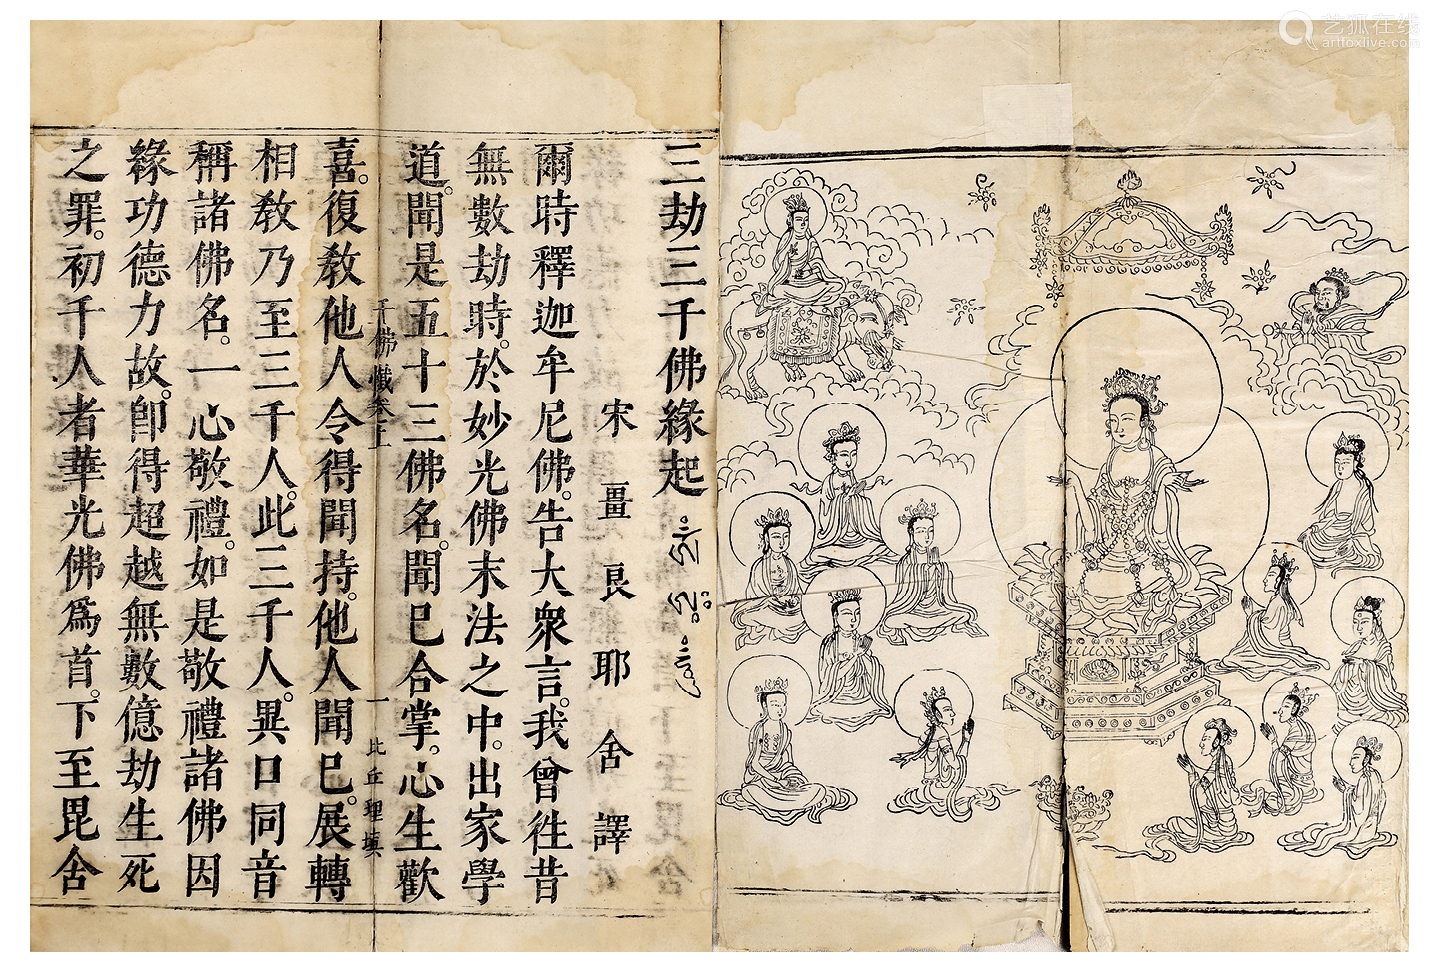 三劫三千佛緣起
宋畺良耶舍譯
爾時釋迦牟尼佛。告大衆言。我曾徃昔
無數劫時。於妙光佛末法之中。出家學
道。聞是五十三佛名。聞已合掌。心生歡
喜。復敎他人令得聞持。他人聞已。展轉
千佛懺卷上 一 比丘理塤
相敎乃至三千人。此三千人。異口同音
稱諸佛名。一心敬禮。如是敬禮諸佛因
緣功德力故。卽得超越無數億劫生死
之罪。初千人者華光佛爲首。下至毘舍
艺狐在线
artfoxlive.com